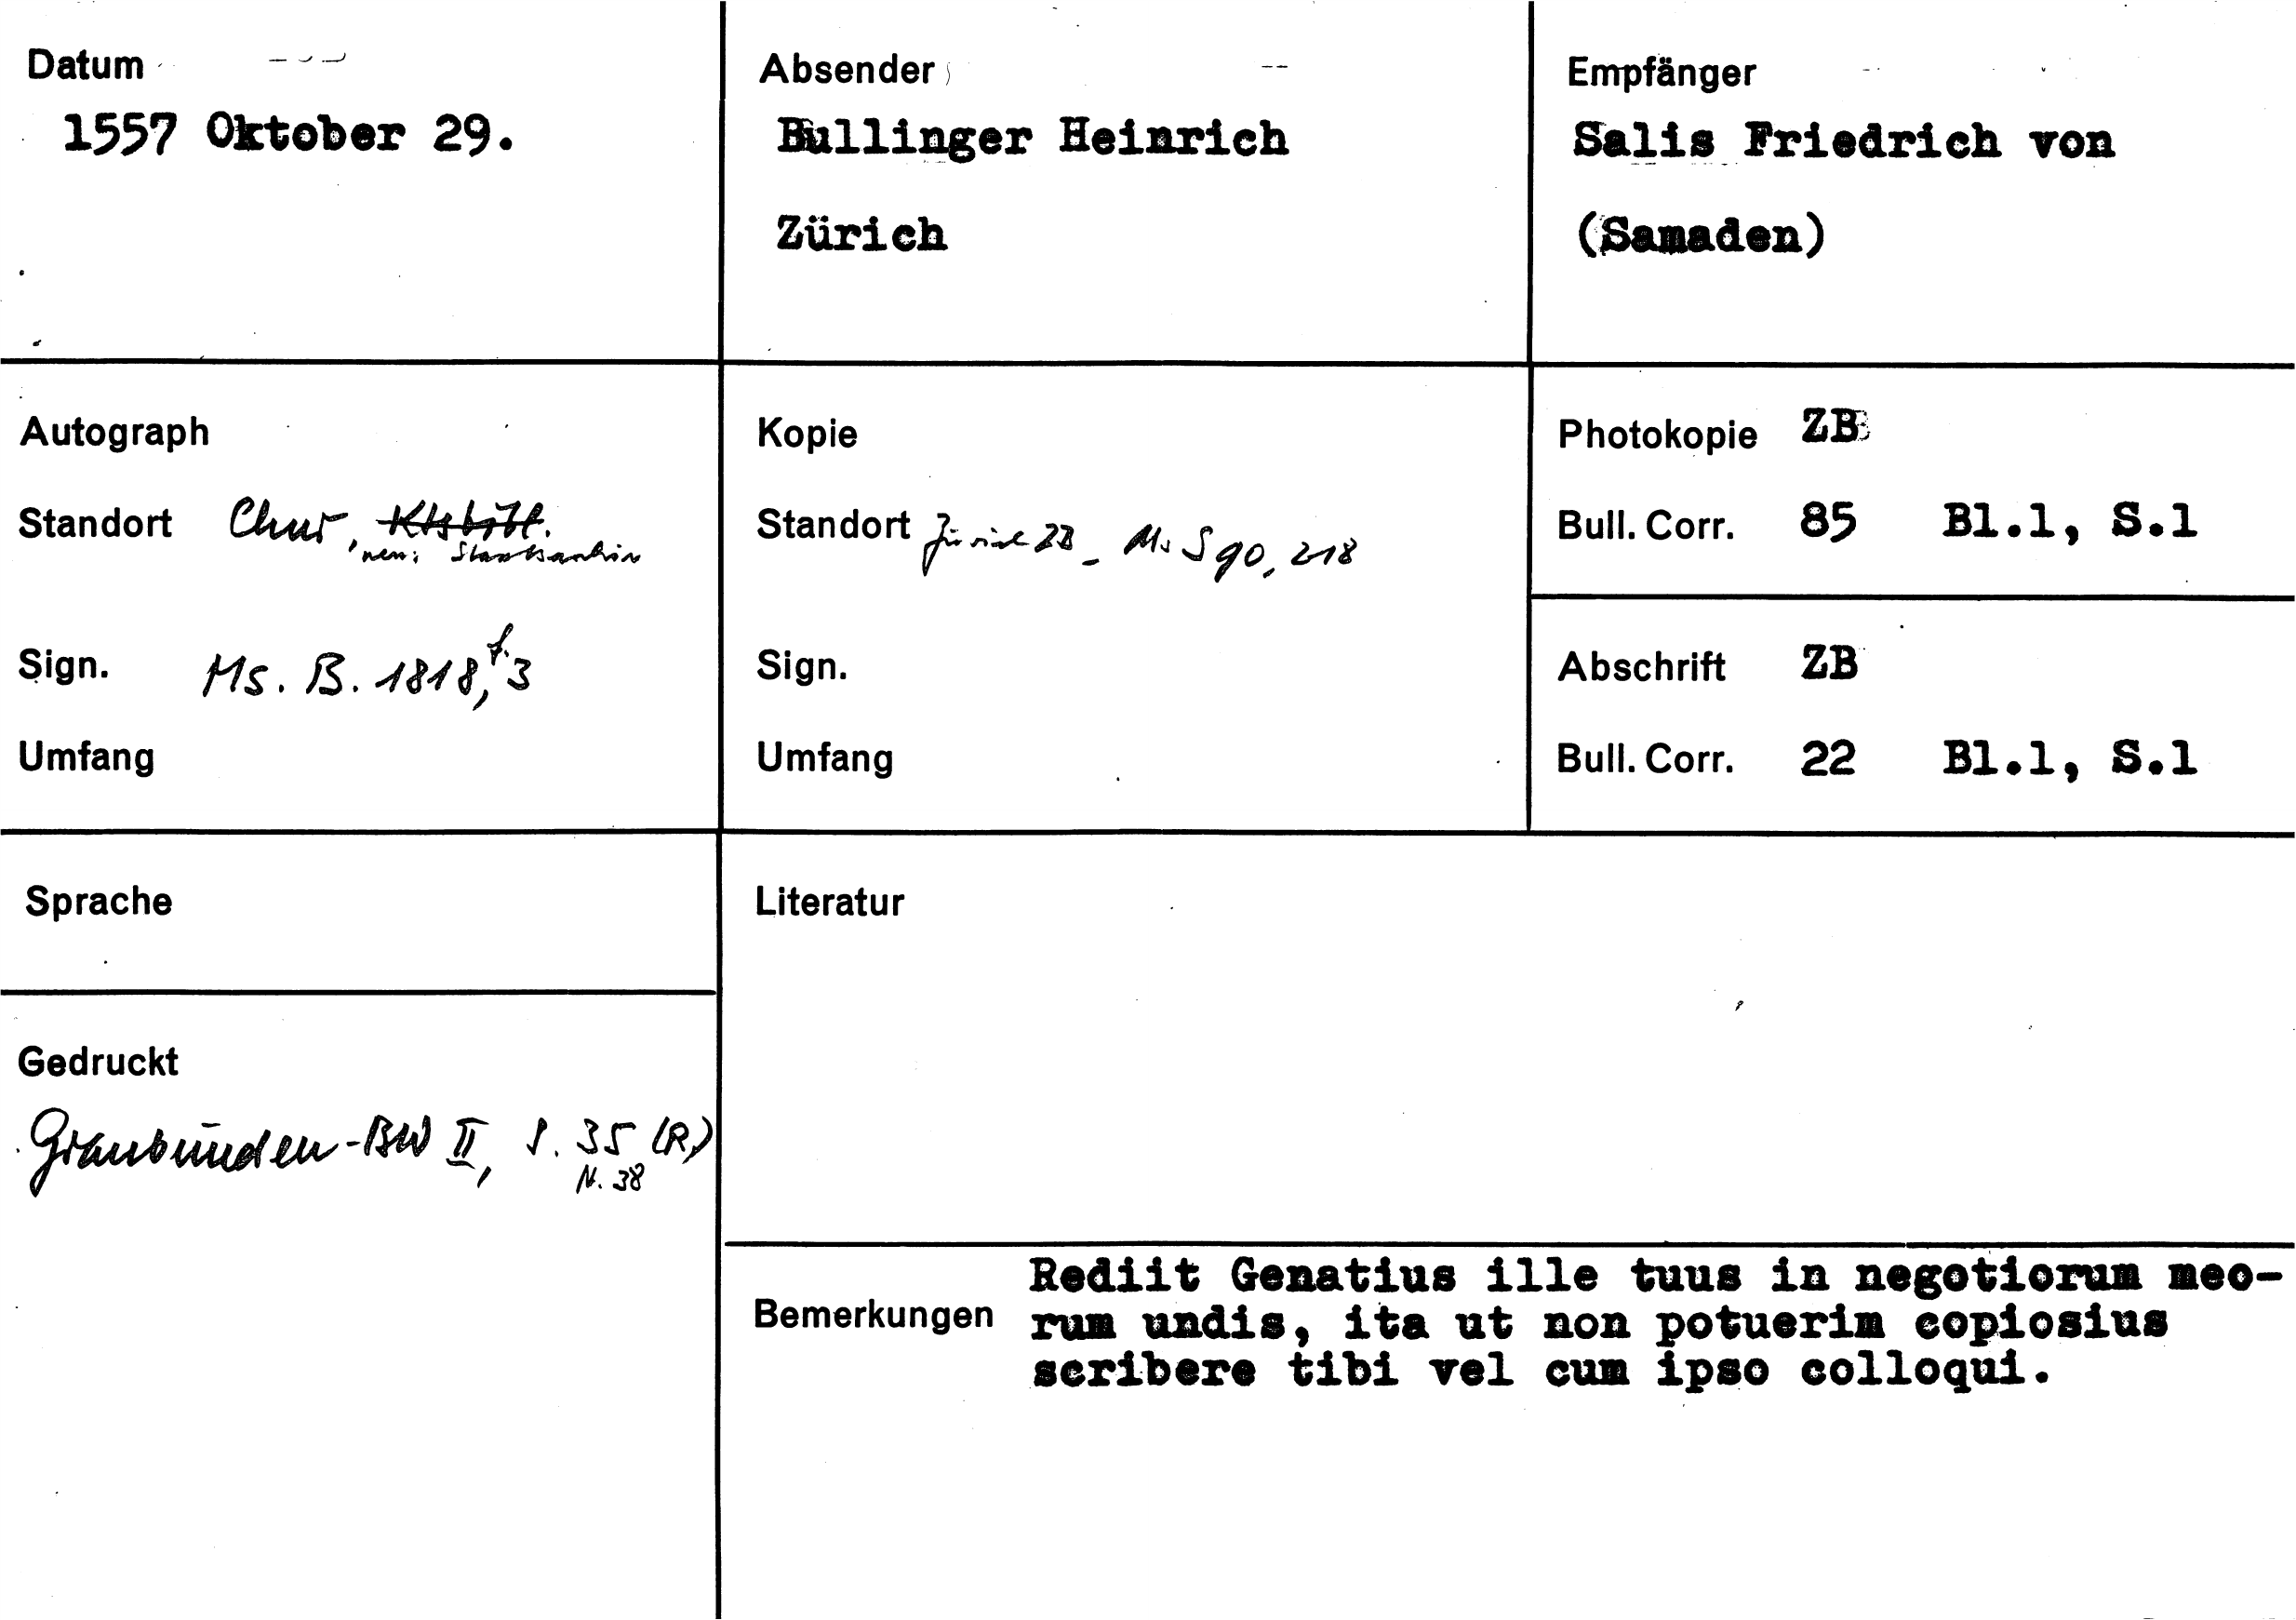 Datum
1557 Oktober 29.
Absender
Bullinger Heinrich
Zürich
Empfänger
Salis Friedrich von
(Samaden)
Autograph
Standort Chur, Ktsbibl.
neu: Staatsarchiv
Sign. Ms. B. 1818, f. 3
Umfang
Kopie
Standort Zürich ZB Ms S 90, 218
Sign.
Umfang
Photokopie ZB
Bull. Corr. 85 Bl.1, S.1
Abschrift ZB
Bull. Corr. 22 Bl.1, S.1
Sprache
Gedruckt
Graubünden-BW II, S. 35 (R)
N. 38
Literatur
Bemerkungen
Rediit Genatius ille tuus in negotiorum meo-
rum undis, ita ut non potuerim copiosius
scribere tibi vel cum ipso colloqui.